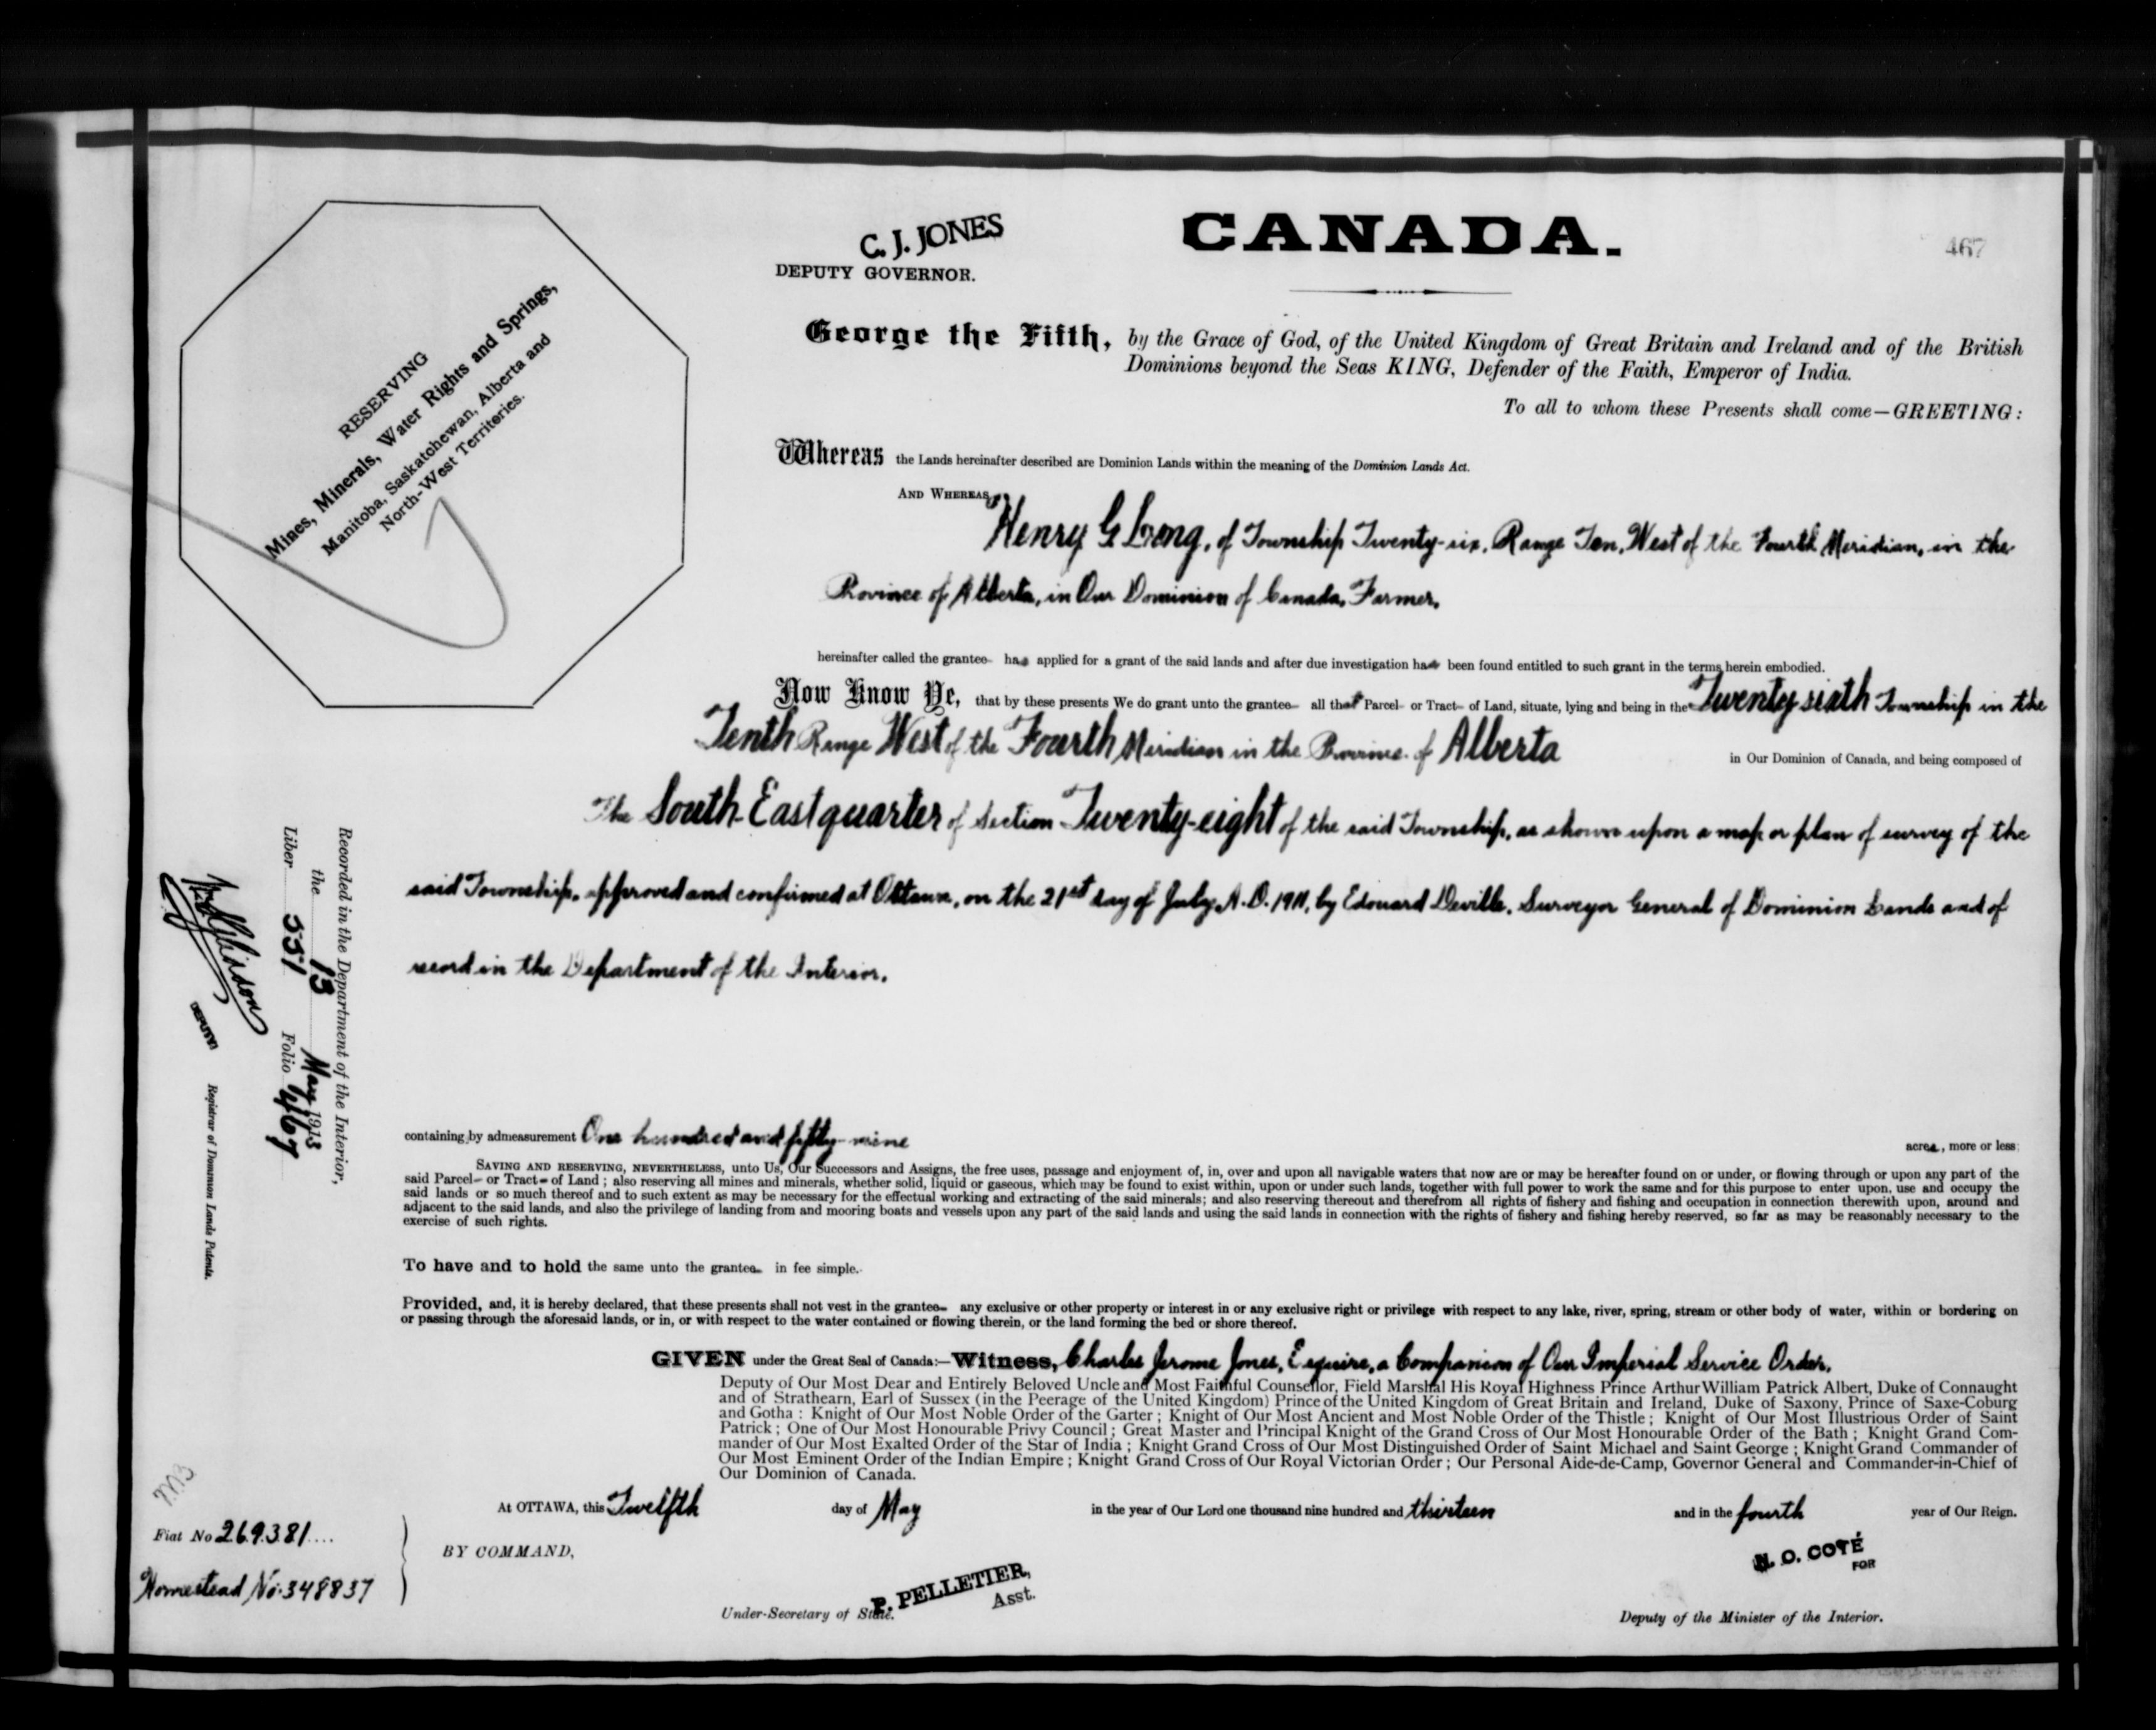 467
C. J. JONES
DEPUTY GOVERNOR.
CANADA.
RESERVING
Mines, Minerals, Water Rights and Springs,
Manitoba, Saskatchewan, Alberta and
North-West Territories.
George the Fifth, by the Grace of God, of the United Kingdom of Great Britain and Ireland and of the British
Dominions beyond the Seas KING, Defender of the Faith, Emperor of India.
To all to whom these Presents shall come—GREETING:
Whereas the Lands hereinafter described are Dominion Lands within the meaning of the Dominion Lands Act.
AND WHEREAS
Henry G, of Township Twenty-six, Range Ten, West of the Fourth Meridian, in the
Province of Alberta, in Our Dominion of Canada, Farmer,
hereinafter called the grantee has applied for a grant of the said lands and after due investigation has been found entitled to such grant in the terms herein embodied.
Now Know Ye, that by these presents We do grant unto the grantee all that Parcel or Tract of Land, situate, lying and being in the Twenty sixth Township in the
Tenth Range West of the Fourth Meridian in the Province of Alberta in Our Dominion of Canada, and being composed of
The South-East quarter of Section Twenty-eight of the said Township, as shown upon a map or plan of survey of the
said Township, approved and confirmed at Ottawa, on the 21st day of July, A.D. 1911, by Edouard Deville, Surveyor General of Dominion Lands and of
record in the Department of the Interior.
containing by admeasurement One hundred and fifty-nine acres, more or less:
SAVING AND RESERVING, NEVERTHELESS, unto Us, Our Successors and Assigns, the free uses, passage and enjoyment of, in, over and upon all navigable waters that now are or may be hereafter found on or under, or flowing through or upon any part of the
said Parcel or Tract of Land; also reserving all mines and minerals, whether solid, liquid or gaseous, which may be found to exist within, upon or under such lands, together with full power to work the same and for this purpose to enter upon, use and occupy the
said lands or so much thereof and to such extent as may be necessary for the effectual working and extracting of the said minerals; and also reserving thereout and therefrom all rights of fishery and fishing and occupation in connection therewith upon, around and
adjacent to the said lands, and also the privilege of landing from and mooring boats and vessels upon any part of the said lands and using the said lands in connection with the rights of fishery and fishing hereby reserved, so far as may be reasonably necessary to the
exercise of such rights.
To have and to hold the same unto the grantee in fee simple.
Provided, and, it is hereby declared, that these presents shall not vest in the grantee any exclusive or other property or interest in or any exclusive right or privilege with respect to any lake, river, spring, stream or other body of water, within or bordering on
or passing through the aforesaid lands, or in, or with respect to the water contained or flowing therein, or the land forming the bed or shore thereof.
GIVEN under the Great Seal of Canada:—Witness, Charles Jerome Jones, Esquire, a Companion of Our Imperial Service Order,
Deputy of Our Most Dear and Entirely Beloved Uncle and Most Faithful Counsellor, Field Marshal His Royal Highness Prince Arthur William Patrick Albert, Duke of Connaught
and of Strathearn, Earl of Sussex (in the Peerage of the United Kingdom) Prince of the United Kingdom of Great Britain and Ireland, Duke of Saxony, Prince of Saxe-Coburg
and Gotha: Knight of Our Most Noble Order of the Garter; Knight of Our Most Ancient and Most Noble Order of the Thistle; Knight of Our Most Illustrious Order of Saint
Patrick; One of Our Most Honourable Privy Council; Great Master and Principal Knight of the Grand Cross of Our Most Honourable Order of the Bath; Knight Grand Com-
mander of Our Most Exalted Order of the Star of India; Knight Grand Cross of Our Most Distinguished Order of Saint Michael and Saint George; Knight Grand Commander of
Our Most Eminent Order of the Indian Empire; Knight Grand Cross of Our Royal Victorian Order; Our Personal Aide-de-Camp, Governor General and Commander-in-Chief of
Our Dominion of Canada.
At OTTAWA, this Twelfth day of May in the year of Our Lord one thousand nine hundred and thirteen and in the fourth year of Our Reign.
BY COMMAND,
P. PELLETIER,
Asst.
Under-Secretary of State.
N. O. COTÉ
FOR
Deputy of the Minister of the Interior.
Recorded in the Department of the Interior,
the 13 May 1913
Liber 551 Folio 467
DEPUTY
Registrar of Dominion Lands Patents.
Fiat No 269381
Homestead No. 348837